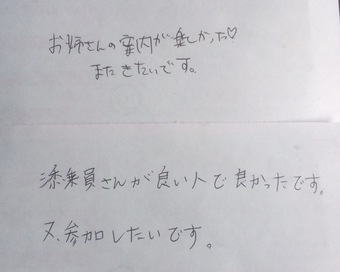 お姉さんの案内が楽しかった♡
またきたいです。
添乗員さんが良い人で良かったです。
又、参加したいです。